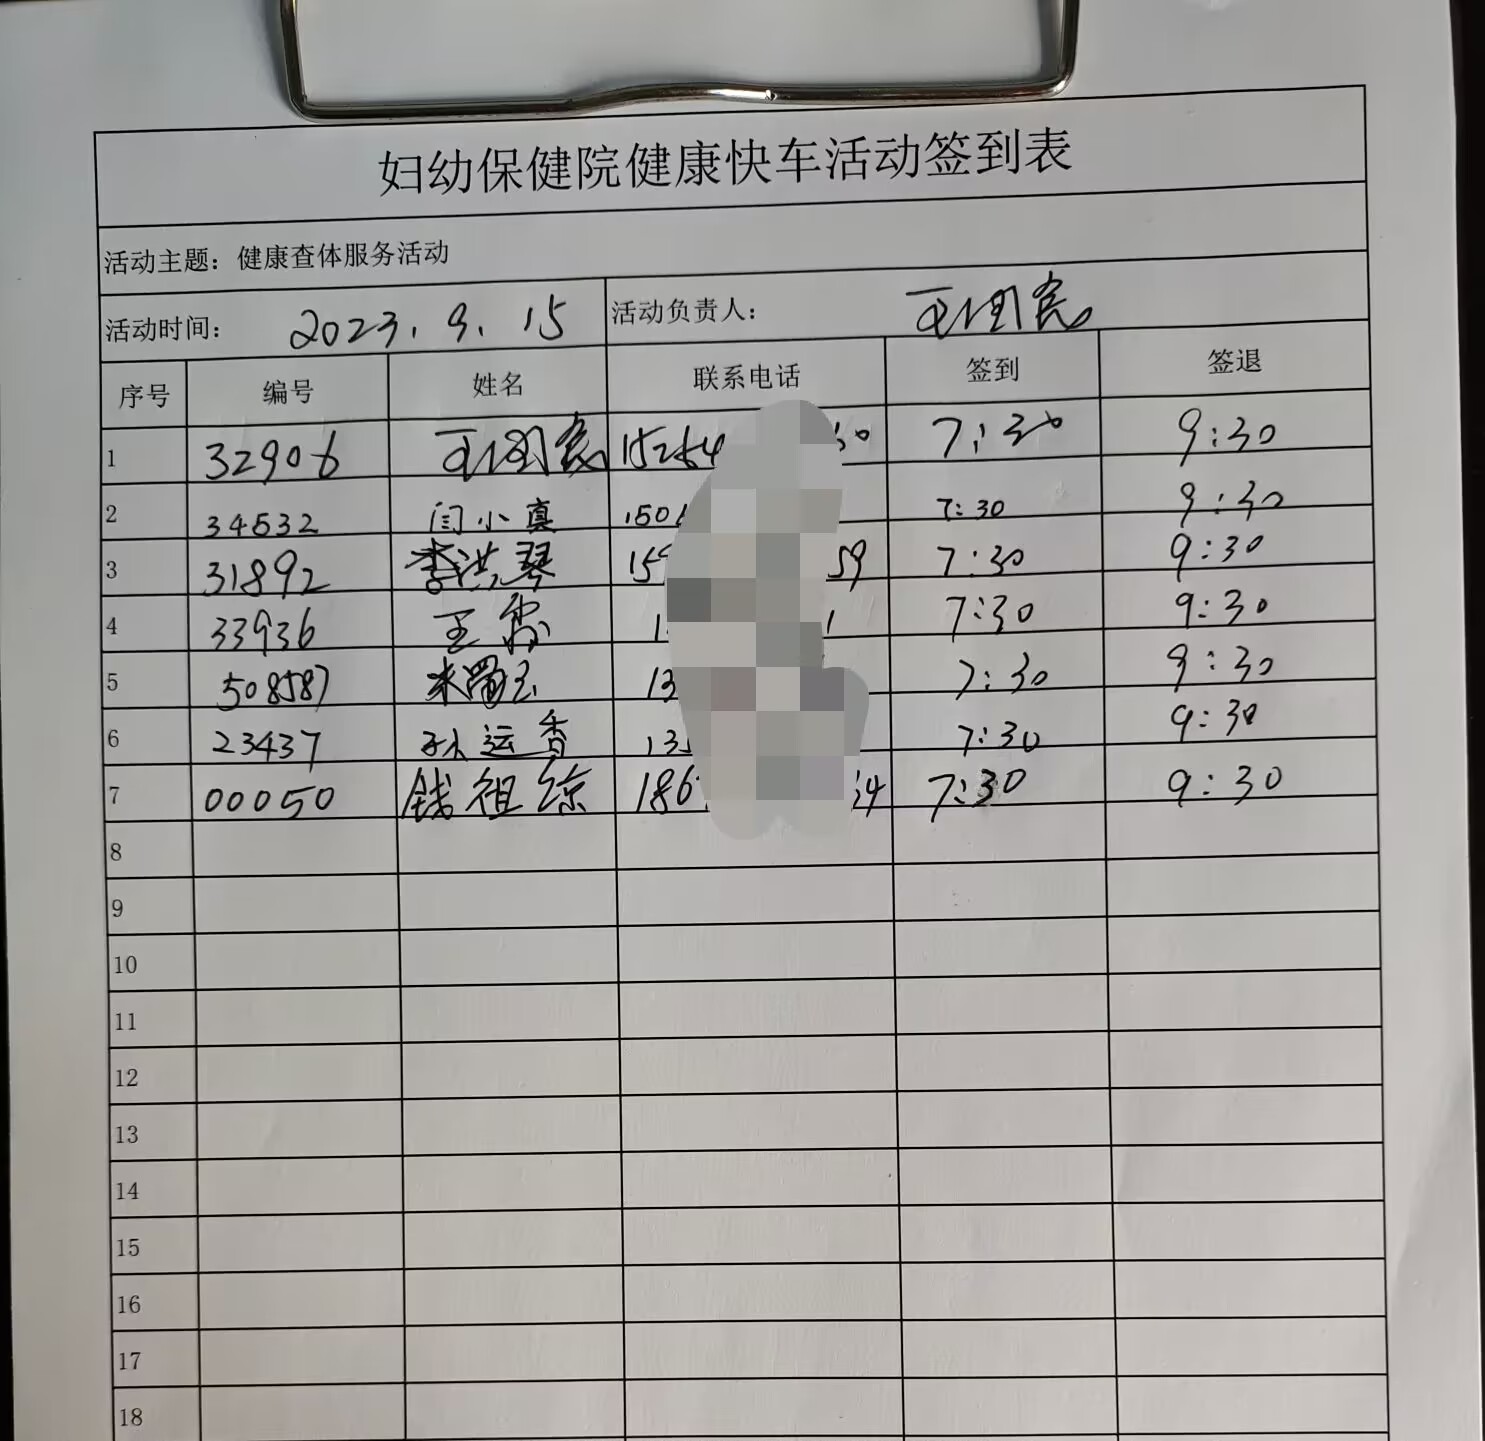 妇幼保健院健康快车活动签到表
活动主题：健康查体服务活动
活动时间： 2023.9.15 活动负责人：
序号 编号 姓名 联系电话 签到 签退
1 32906 15264 7:30 9:30
2 34532 闫小真 150 7:30 9:30
3 31892 李洪琴 15 59 7:30 9:30
4 33936 王 1 1 7:30 9:30
5 508587 13 7:30 9:30
6 23437 孙运香 13 7:30 9:30
7 00050 钱祖琼 186 7:30 9:30
8
9
10
11
12
13
14
15
16
17
18